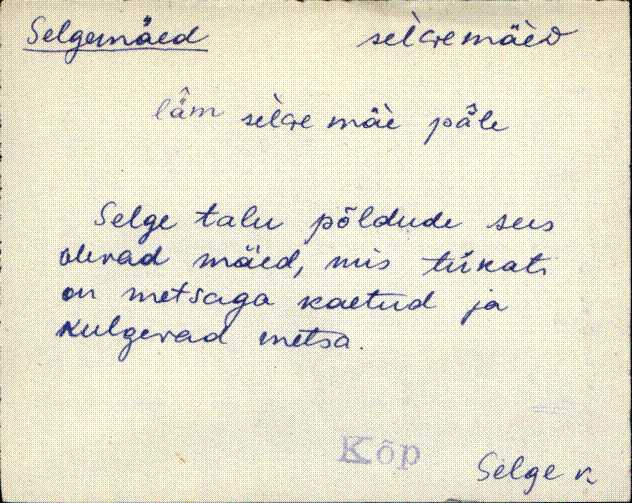 Selgemäed sèlGemäèD
lǟm sèlGe mäe pǟle
Selge talu põldude sees
olevad mäed, mis tükati
on metsaga kaetud ja
kulgevad metsa.
Kõp
Selge k.